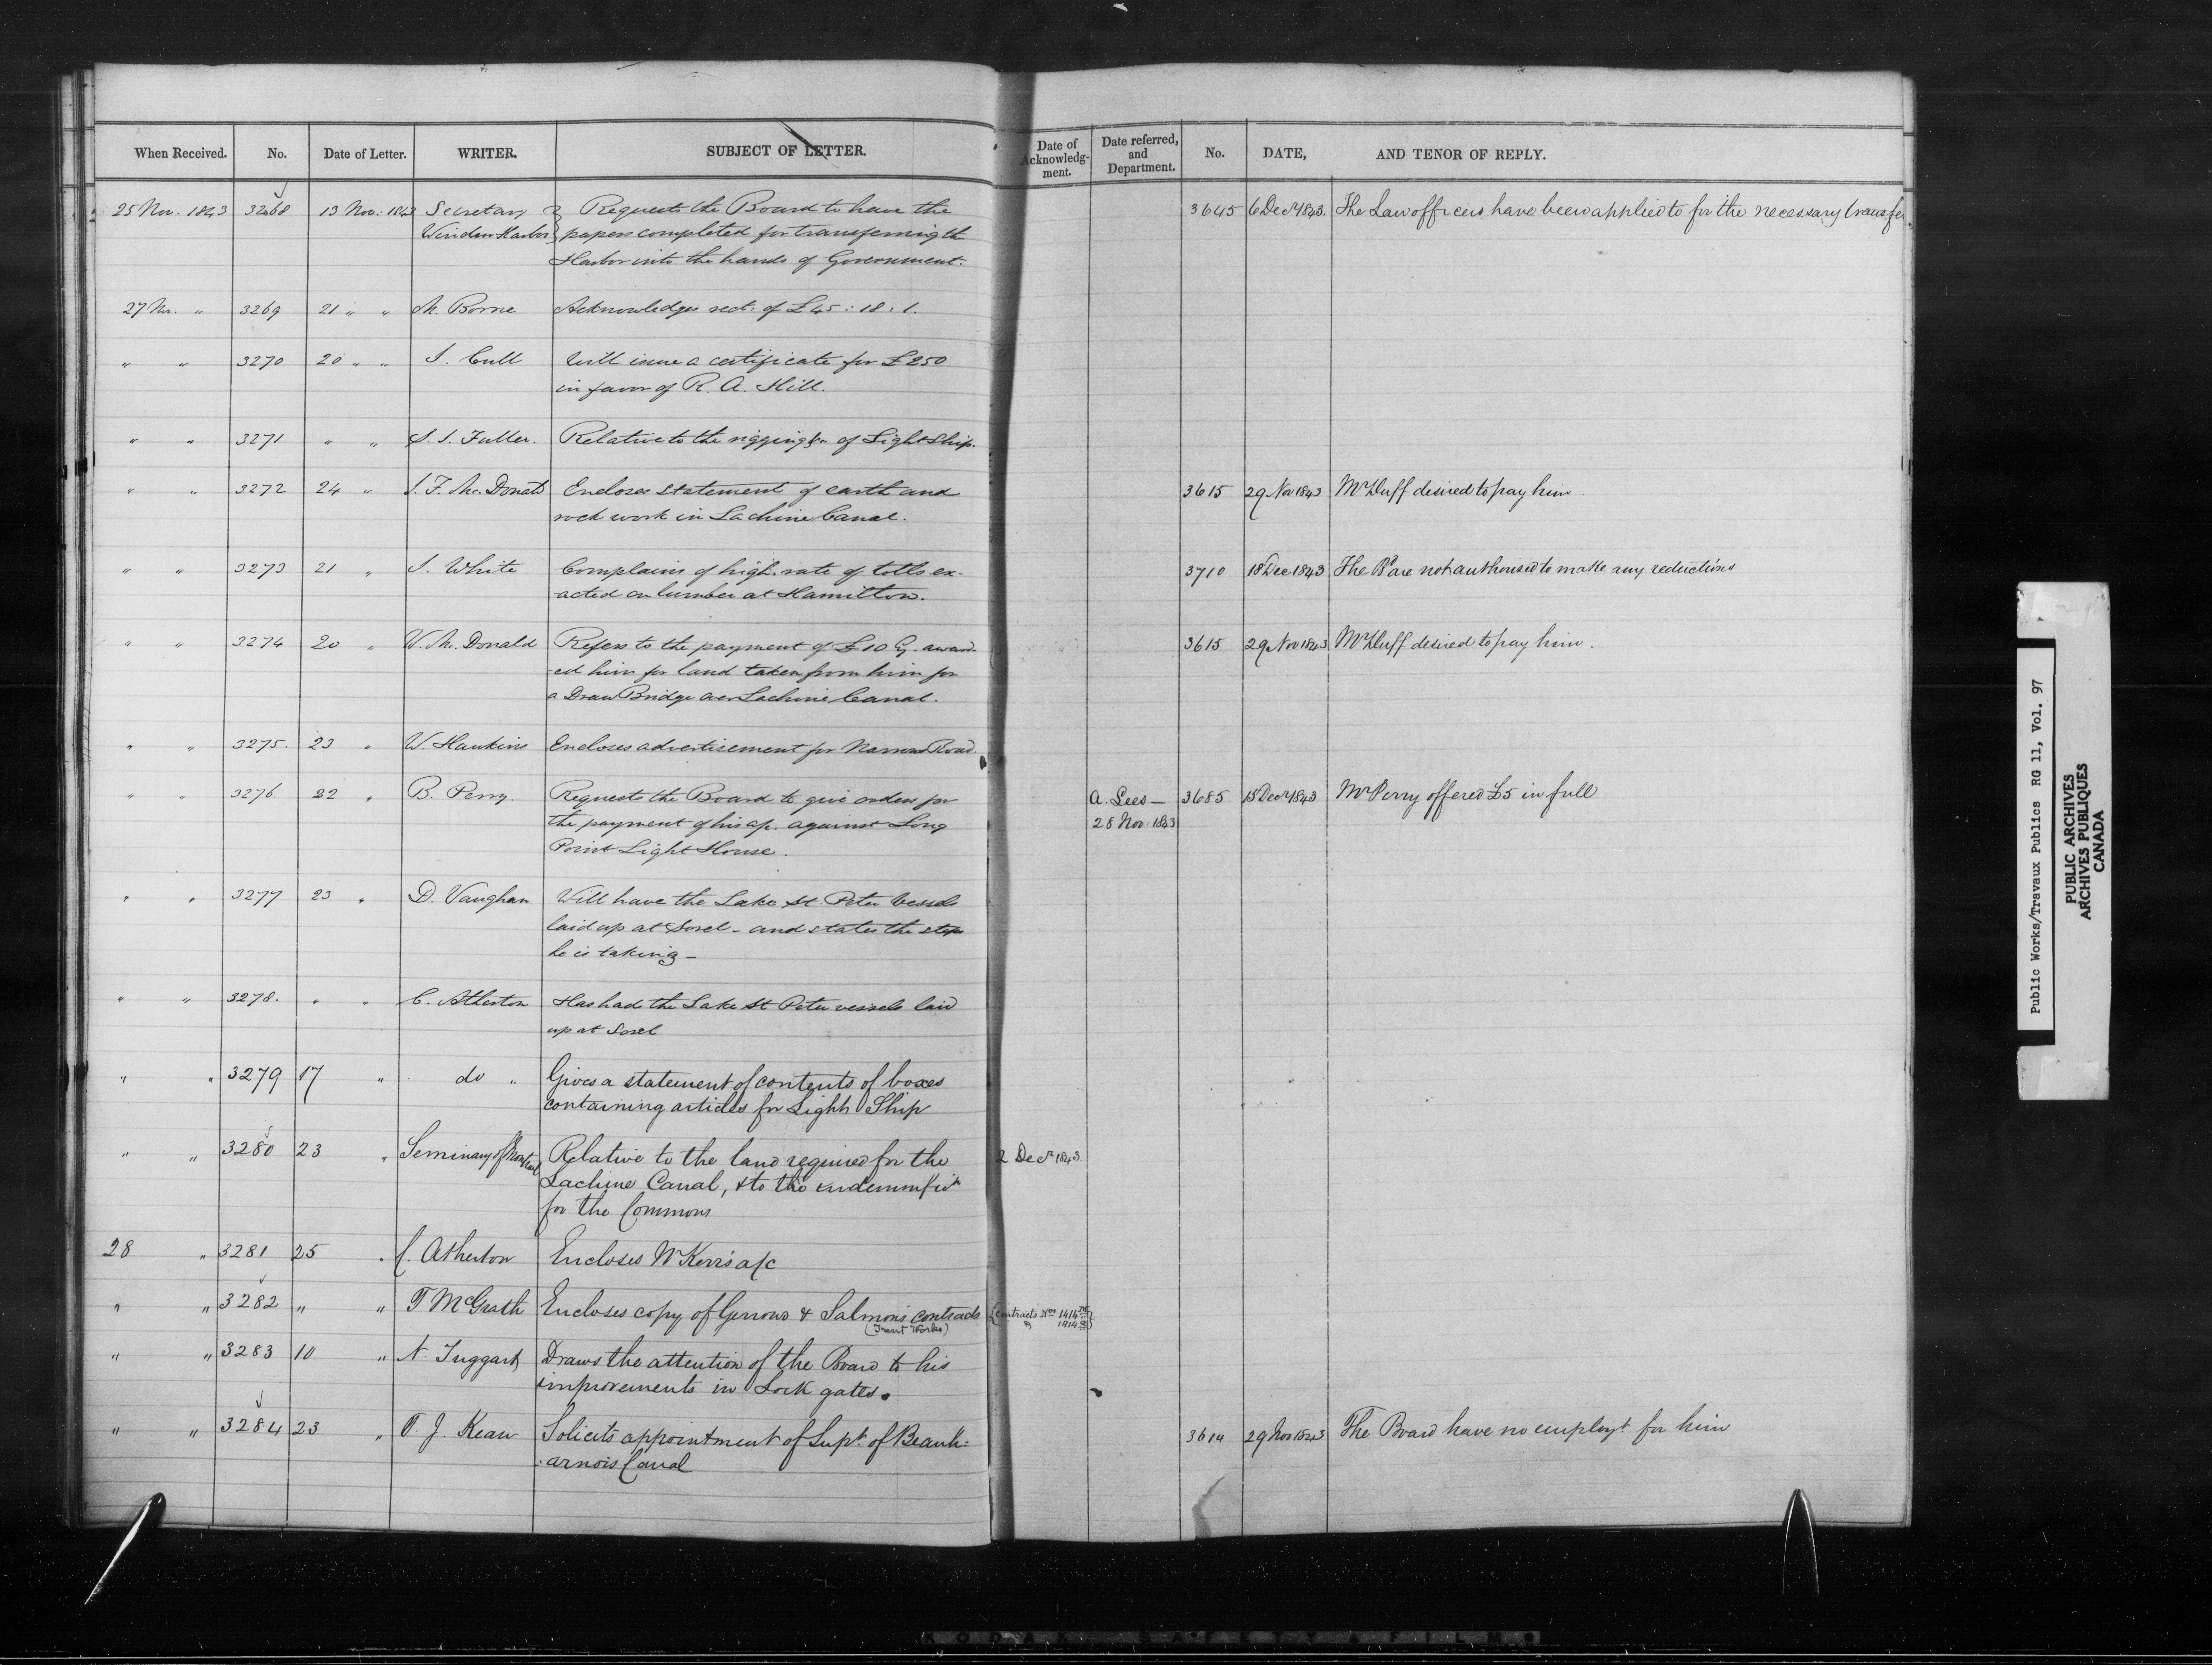 When Received. No. Date of Letter. WRITER. SUBJECT OF LETTER. Date of Acknowledg-ment. Date referred, and Department. No. DATE, AND TENOR OF REPLY.
25 Nov. 1843 3268 13 Nov: 1843 Secretary } Requests the Board to have the 3645 6 Decr 1843. The Law officers have been applied to for the necessary transfer
Windsor Harbor } papers completed for transferring the
Harbor into the hands of Government.
27 Nov. " 3269 21 " " M. Borne Acknowledges rect: of £45:18:1.
" " 3270 20 " " J. Cull Will issue a certificate for £250
in favor of R. A. Hill.
" " 3271 " " S. S. Fuller. Relative to the rigging &c of Light Ship.
" " 3272 24 " J. F. McDonald Encloses statement of earth and 3615 29 Nov 1843 Mr Duff desired to pay him.
rock work in Lachine Canal.
" " 3273 21 " J. White Complains of high rate of tolls ex- 3710 18 Dec 1843 The Bd are not authorised to make any reductions
-acted on lumber at Hamilton.
" " 3274 20 " W. McDonald Refers to the payment of £10 Cy. award- 3615 29 Nov 1843 Mr Duff desired to pay him.
-ed him for land taken from him for
a Draw Bridge over Lachine Canal.
" " 3275. 23 " W. Hawkins Encloses advertisement for Narrows Road.
" " 3276. 22 " B. Perry. Requests the Board to give orders for A. Lees — 3685 15 Decr 1843 Mr Perry offered £5 in full
the payment of his a/c. against Long 28 Nov. 1843
Point Light House.
" " 3277 23 " D. Vaughan Will have the Lake St. Peter vessels
laid up at Sorel - and states the steps
he is taking —
" " 3278. " " C. Atherton Has had the Lake St Peter vessels laid
up at Sorel
" " 3279 17 " do " Gives a statement of contents of boxes
containing articles for Light Ship
" " 3280 23 " Seminary of Montreal Relative to the land required for the 2 Decr 1843
Lachine Canal, & to the indemnificn
for the Commons
28 " 3281 25 " C. Atherton Encloses W Kerr's a/c
" " 3282 " " T McGrath Encloses copy of Gerrows & Salmons contracts {Contracts Nos 1414
(Trent Works) & 1414
" " 3283 10 " N. Taggart Draws the attention of the Board to his
improvements in Lock gates.
" " 3284 23 " T. J. Kean Solicits appointment of Supt. of Beauh- 3614 29 Nov 1843 The Board have no employt for him
-arnois Canal
Public Works/Travaux Publics RG 11, Vol. 97
PUBLIC ARCHIVES
ARCHIVES PUBLIQUES
CANADA
KODAK SAFETY FILM